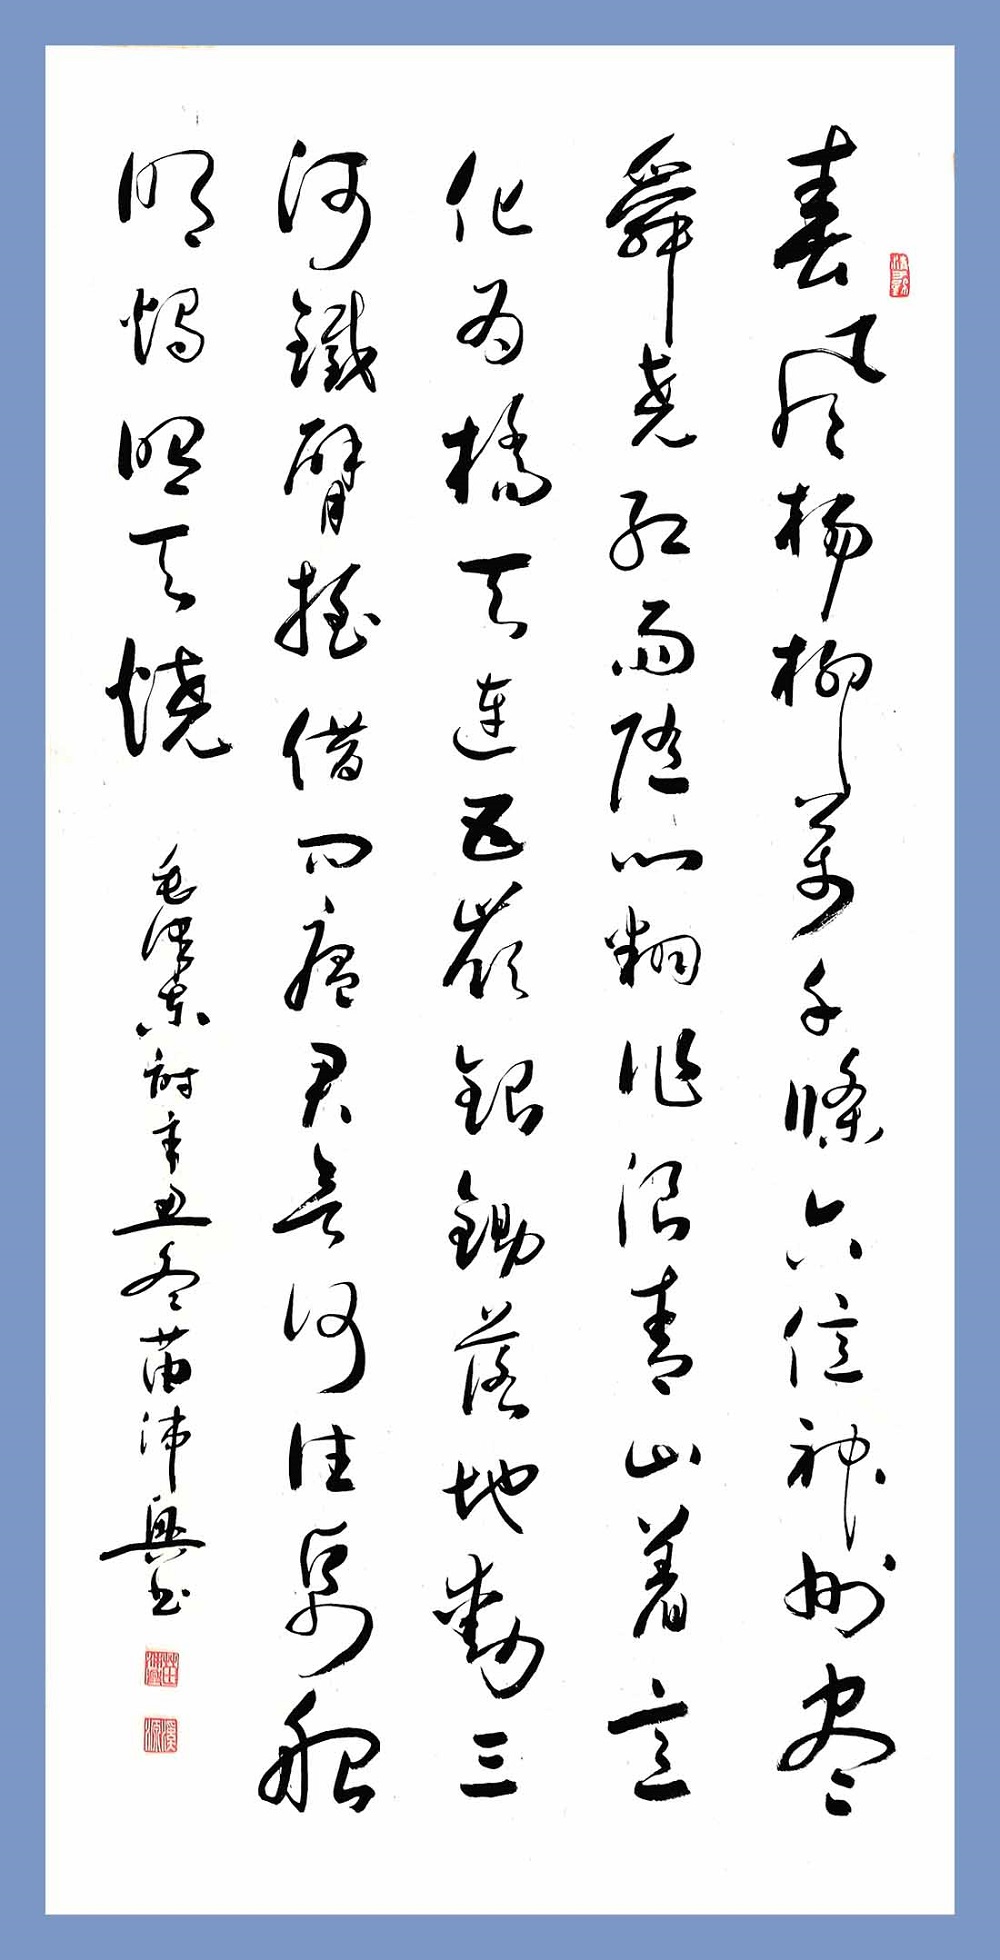 春风杨柳萬千條六億神州尽
舜尧红雨随心翻作浪青山着意
化为橋天连五嶺銀鋤落地動三
河鐵臂摇借问瘟君欲何往帋船
明烛照天燒
毛泽东诗辛丑冬苗沛興书